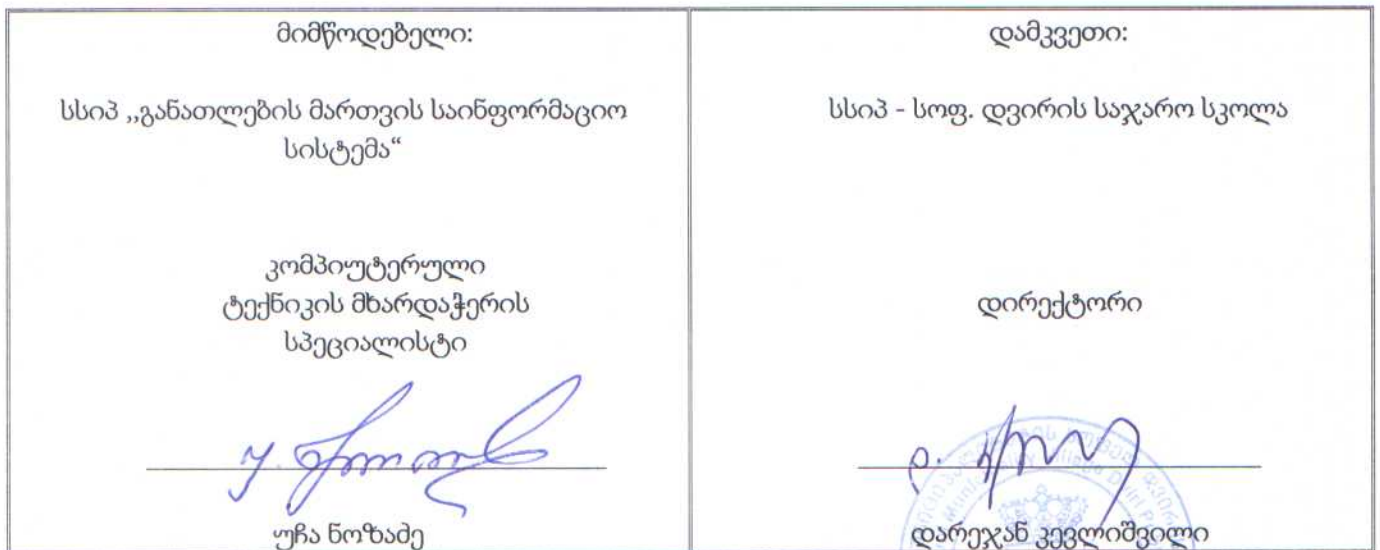 მიმწოდებელი:
სსიპ ,,განათლების მართვის საინფორმაციო
სისტემა“
კომპიუტერული
ტექნიკის მხარდაჭერის
სპეციალისტი
უჩა ნოზაძე
დამკვეთი:
სსიპ - სოფ. დვირის საჯარო სკოლა
დირექტორი
დარეჯან კევლიშვილი